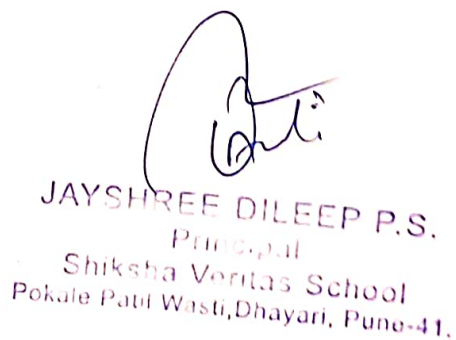 JAYSHREE DILEEP P.S.
Principal
Shiksha Veritas School
Pokale Patil Wasti, Dhayari, Pune-41.